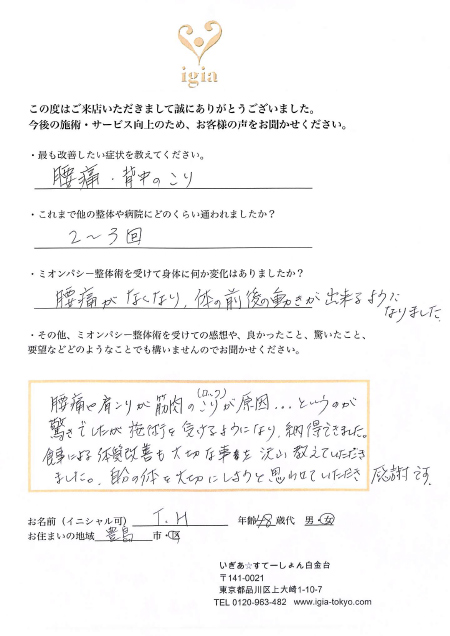 igia
この度はご来店いただきまして誠にありがとうございました。
今後の施術・サービス向上のため、お客様の声をお聞かせください。
・最も改善したい症状を教えてください。
腰痛・背中のこり
・これまで他の整体や病院にどのくらい通われましたか？
2〜3回
・ミオンパシー整体術を受けて身体に何か変化はありましたか？
腰痛がなくなり、体の前後の動きが出来るように
なりました
・その他、ミオンパシー整体術を受けての感想や、良かったこと、驚いたこと、
要望などどのようなことでも構いませんのでお聞かせください。
(ロック)
腰痛や肩こりが筋肉のこりが原因...というのが
驚きでしたが施術を受けるようになり、納得できました。
食事による体質改善も大切な事を沢山教えていただき
ました。自分の体を大切にしようと思わせていただき 感謝です。
お名前（イニシャル可） T.H 年齢48歳代 男・女
お住まいの地域 豊島 市・区
いぎあ☆すてーしょん白金台
〒141-0021
東京都品川区上大崎1-10-7
TEL 0120-963-482 www.igia-tokyo.com